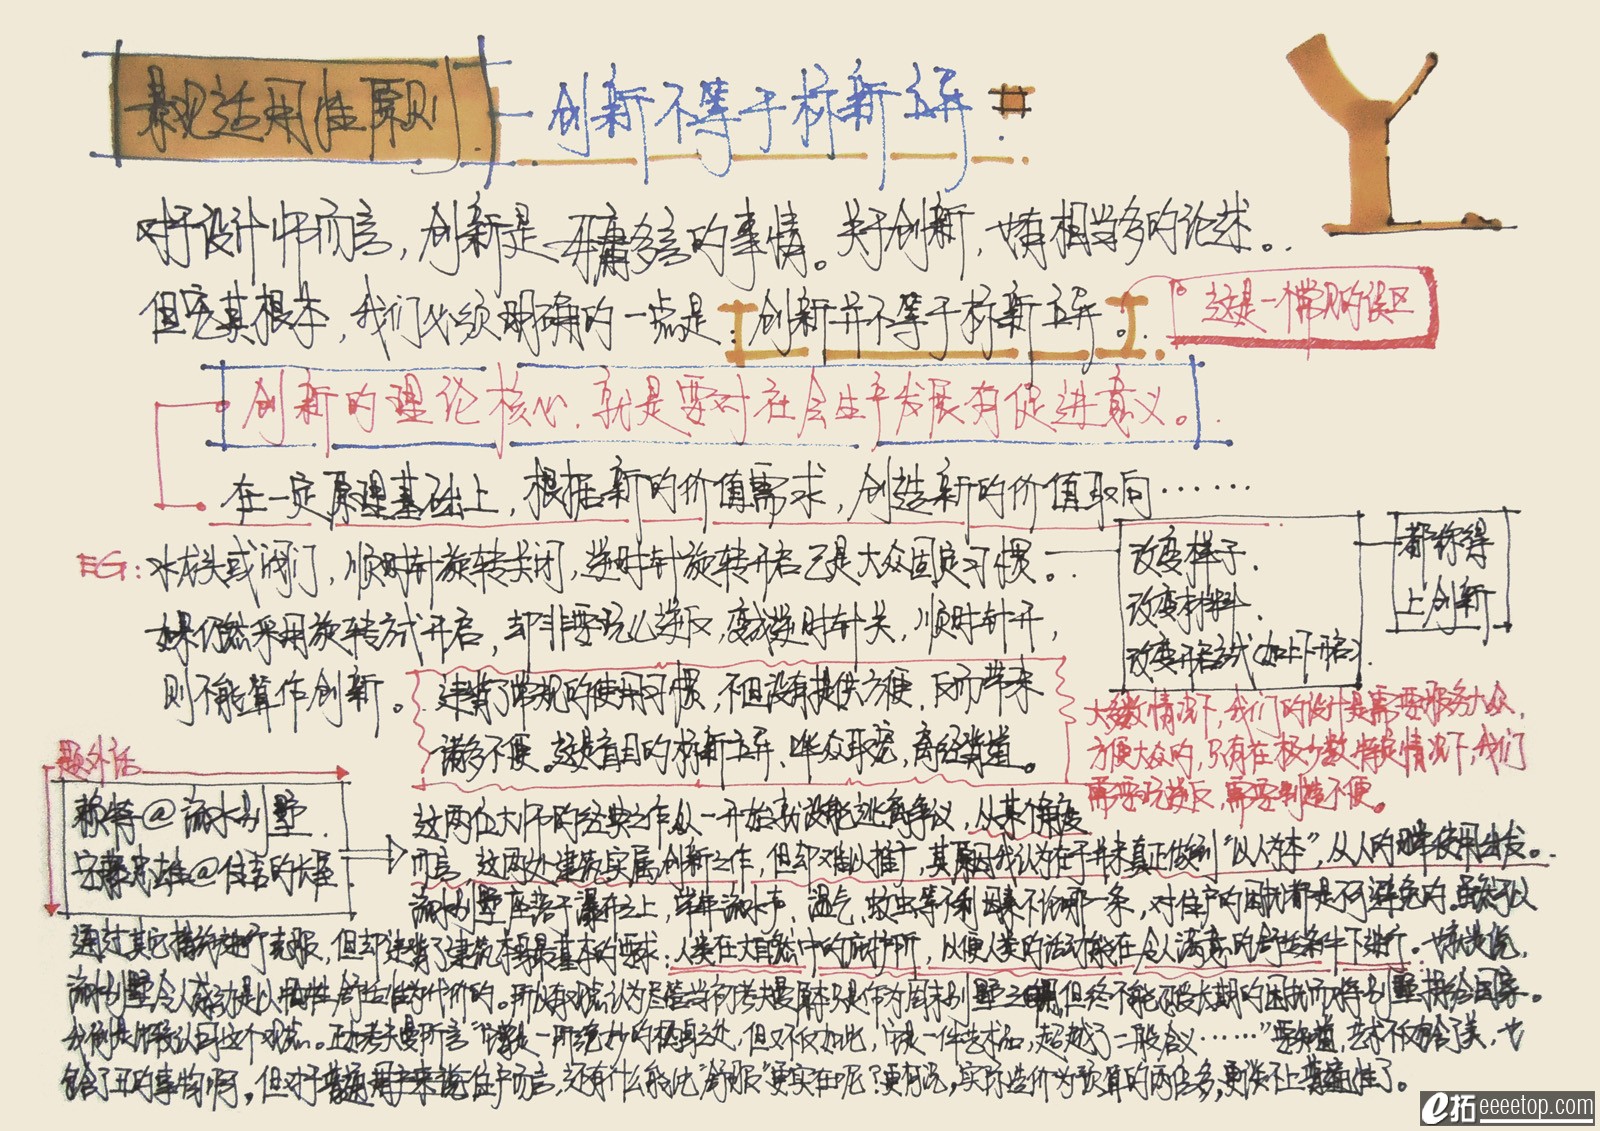 表现适用性原则
创新不等于标新立异
对于设计师而言，创新是毋庸多言的事情。关于创新，也有相当多的论述。
但究其根本，我们必须明确的一点是：创新并不等于标新立异。
这是一个常见的误区
创新的理论核心，就是要对社会生产发展有促进意义。
在一定原理基础上，根据新的价值需求，创造新的价值取向……
EG：水龙头或阀门，顺时针旋转关闭，逆时针旋转开启已是大众固定习惯。
如果仍然采用旋转方式开启，却非要玩儿逆反，变成逆时针关，顺时针开，
则不能算作创新。
改变样子.
改变材料.
改变开启方式(如上下开启).
都称得
上创新
违背了常规的使用习惯，不但没有提供方便，反而带来
诸多不便。这是盲目的标新立异、哗众取宠，离经背道。
大多数情况下，我们的设计是需要服务大众，
方便大众的，只有在极少数特殊情况下，我们
需要玩逆反，需要制造不便。
题外话
赖特@流水别墅.
安藤忠雄@住吉的长屋
这两位大师的经典之作从一开始就没能逃离争议，从某个角度
而言，这两处建筑实属创新之作，但却难以推广，其原因我认为在于并未真正做到“以人为本”，从人的日常使用出发。
流水别墅座落于瀑布之上，常年流水声、湿气、蚊虫等不利因素不论哪一条，对住户的困扰都是不可避免的。虽然可以
通过其它措施进行克服，但却违背了建筑本身最基本的要求：人类在大自然中的庇护所，以便人类的活动能在令人满意的舒适条件下进行。
流水别墅令人感动是以牺牲舒适性为代价的。所以有观点认为尽管当初考夫曼原本只是作为周末别墅之用，但终不能忍受长期的困扰而将别墅捐给国家。
认可这个观点。正如考夫曼所言“这是一所绝妙的栖身之处，但又不仅如此，它是一件艺术品，超越了一般含义……”要知道，艺术不仅给了美，也
给了丑的事物啊，但对于普通用户来说住户而言，还有什么能比“舒服”更实在呢？更何况，实际造价为预算的两倍多，更谈不上普适性了。
e拓 eeeetop.com